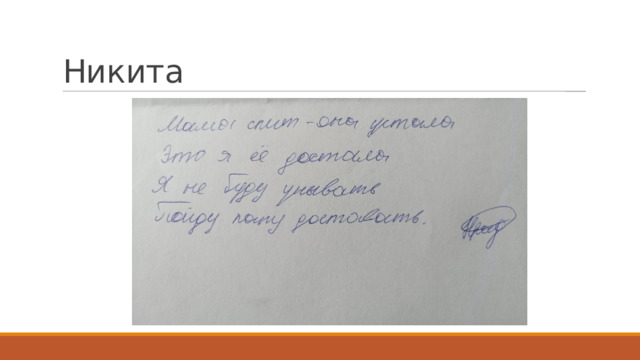 Никита
Мама спит - она устала
Это я её достала
Я не буду унывать
Пойду папу достовать.